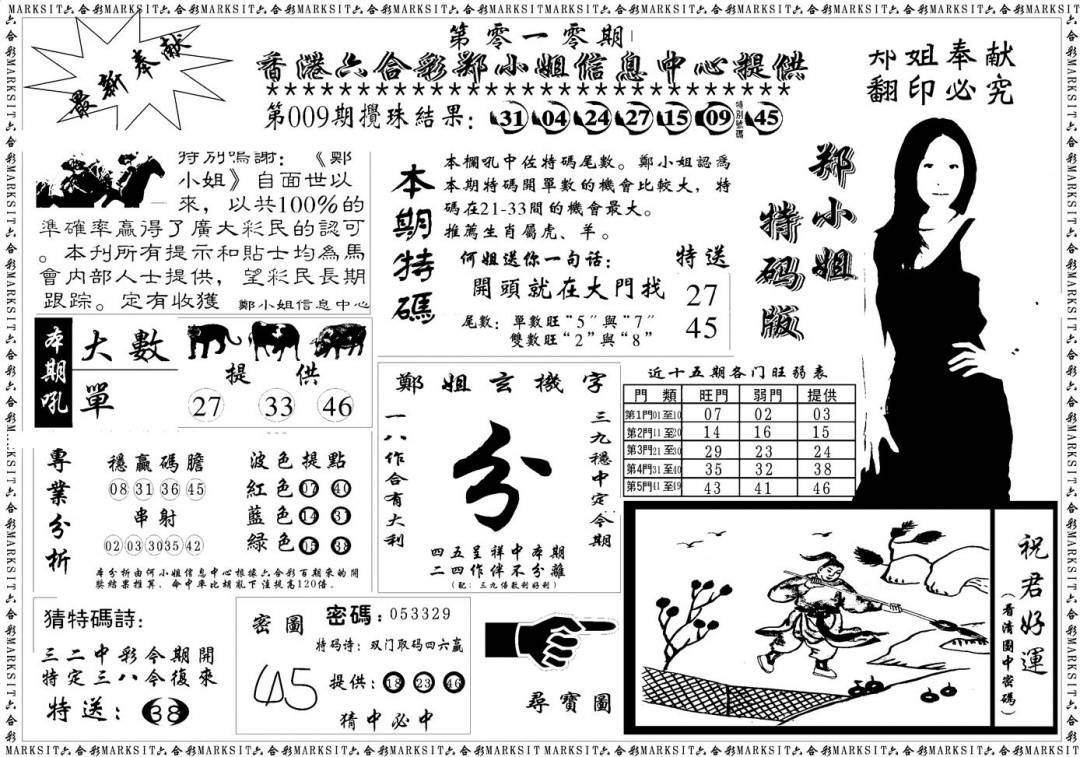 MARKSIT六合彩MARKSIT六合彩MARKSIT六合彩MARKSIT六合彩MARKSIT六合彩MARKSIT六合彩MARKSIT六合彩MARKSIT六合彩
最新奉献
第零一零期
香港六合彩郑小姐信息中心提供
★★★★★★★★★★★★★★★★★★★★★★★★★★★★
第009期攪珠結果: 31 04 24 27 15 09 特別號碼 45
邓姐奉献
翻印必究
特別鳴謝:《鄭
小姐》自面世以
來，以共100%的
準確率贏得了廣大彩民的認可
。本刊所有提示和貼士均為馬
會内部人士提供，望彩民長期
跟踪。定有收獲 鄭小姐信息中心
本期特碼
本欄吼中佐特碼尾數。鄭小姐認爲
本期特碼開單數的機會比較大，特
碼在21-33間的機會最大。
推薦生肖屬虎、羊。
何姐送你一句话: 特送
開頭就在大門找 27
45
尾數: 單數旺“5”與“7”
雙數旺“2”與“8”
郑小姐
特码版
本期吼
大數
單
提供
27 33 46
鄭姐玄機字
一八作合有大利
分
三九穩中定令期
四五呈祥中本期
二四作伴不分離
(配: 三九倍數利好利)
近十五期各门旺弱表
門類 旺門 弱門 提供
第1門01至10 07 02 03
第2門11至20 14 16 15
第3門21至30 29 23 24
第4門31至40 35 32 38
第5門41至49 43 41 46
專業分析
穩贏碼膽
08 31 36 45
串射
02 03 30 35 42
波色提點
紅色 07 40
藍色 14 31
綠色 05 38
本分析由何小姐信息中心根據六合彩百期來的開
獎結果推算，命中率比胡亂下注提高120倍。
猜特碼詩:
三二中彩今期開
特定三八今復來
特送: 38
密圖
密碼: 053329
特码诗: 双门取码四六赢
45
提供: 18 23 46
猜中必中
尋寶圖
祝君好運
(看清圖中密碼)
MARKSIT六合彩MARKSIT六合彩MARKSIT六合彩MARKSIT六合彩MARKSIT MARKSIT六合彩MARKSIT六合彩MARKSIT六合彩